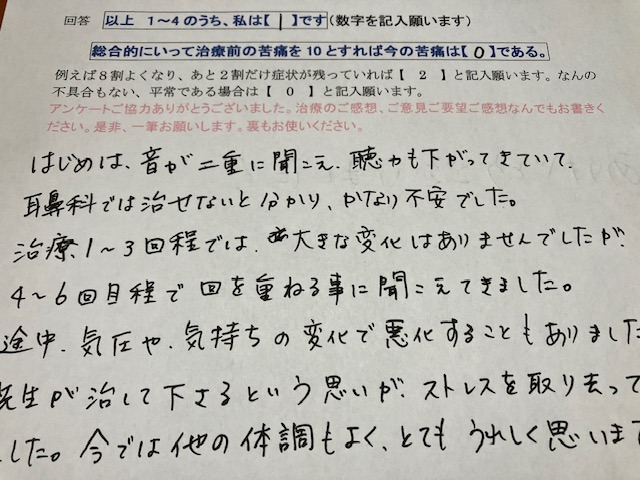 回答 以上 1～4のうち、私は【 1 】です(数字を記入願います)
総合的にいって治療前の苦痛を10とすれば今の苦痛は【 0 】である。
例えば8割よくなり、あと2割だけ症状が残っていれば【 2 】と記入願います。なんの
不具合もない、平常である場合は【 0 】と記入願います。
アンケートご協力ありがとうございました。治療のご感想、ご意見ご要望ご感想なんでもお書きく
ださい。是非、一筆お願いします。裏もお使いください。
はじめは、音が二重に聞こえ、聴力も下がってきていて、
耳鼻科では治せないと分かり、かなり不安でした。
治療1～3回程では、大きな変化はありませんでしたが、
4～6回目程で回を重ねる事に聞こえてきました。
途中、気圧や、気持ちの変化で悪化することもありました
先生が治して下さるという思いが、ストレスを取り去って
した。今では他の体調もよく、とてもうれしく思いま